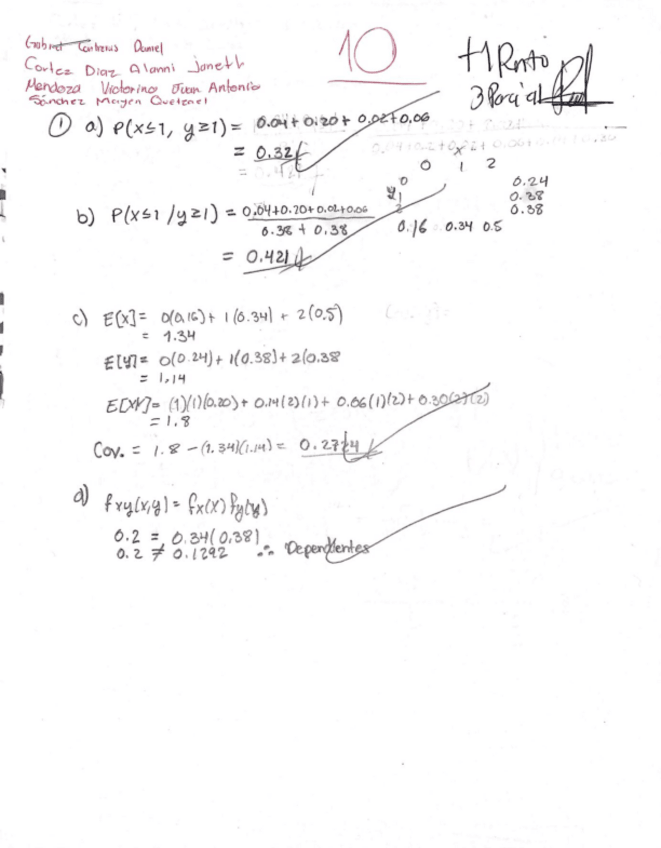 Gabriel Contreras Daniel
Cortez Diaz Alanni Janeth
Mendoza Victorino Juan Antonio
Sánchez Mayen Quetzael
10
+1 Pnto
3 Parcial
① a) P(x≤1, y≥1) = 0.04 + 0.20 + 0.02 + 0.06
= 0.32
b) P(x≤1 / y≥1) = 0.04+0.20+0.02+0.06
0.38 + 0.38
= 0.421
x
0 1 2
y 0 0.24
1 0.38
2 0.38
0.16 0.34 0.5
c) E[X] = 0(0.16) + 1(0.34) + 2(0.5)
= 1.34
E[Y] = 0(0.24) + 1(0.38) + 2(0.38
= 1.14
E[XY] = (1)(1)(0.20) + 0.14(2)(1) + 0.06(1)(2) + 0.30(2)(2)
= 1.8
Cov. = 1.8 - (1.34)(1.14) = 0.2724
d) fxy(x,y) = fx(x) fy(y)
0.2 = 0.34(0.38)
0.2 ≠ 0.1292 ∴ Dependientes